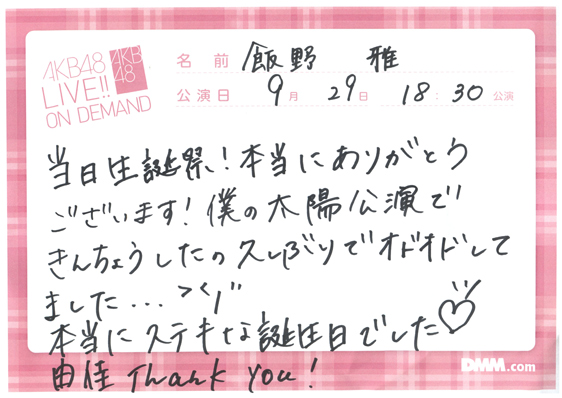 AKB48
LIVE!!
ON DEMAND
AKB
48
名前 飯野 雅
公演日 9月 29日 18:30 公演
当日生誕祭!本当にありがとう
ございます!僕の太陽公演で
きんちょうしたの久しぶりでオドオドして
ました...
本当にステキな誕生日でした♡
由佳 Thank you!
DMM.com